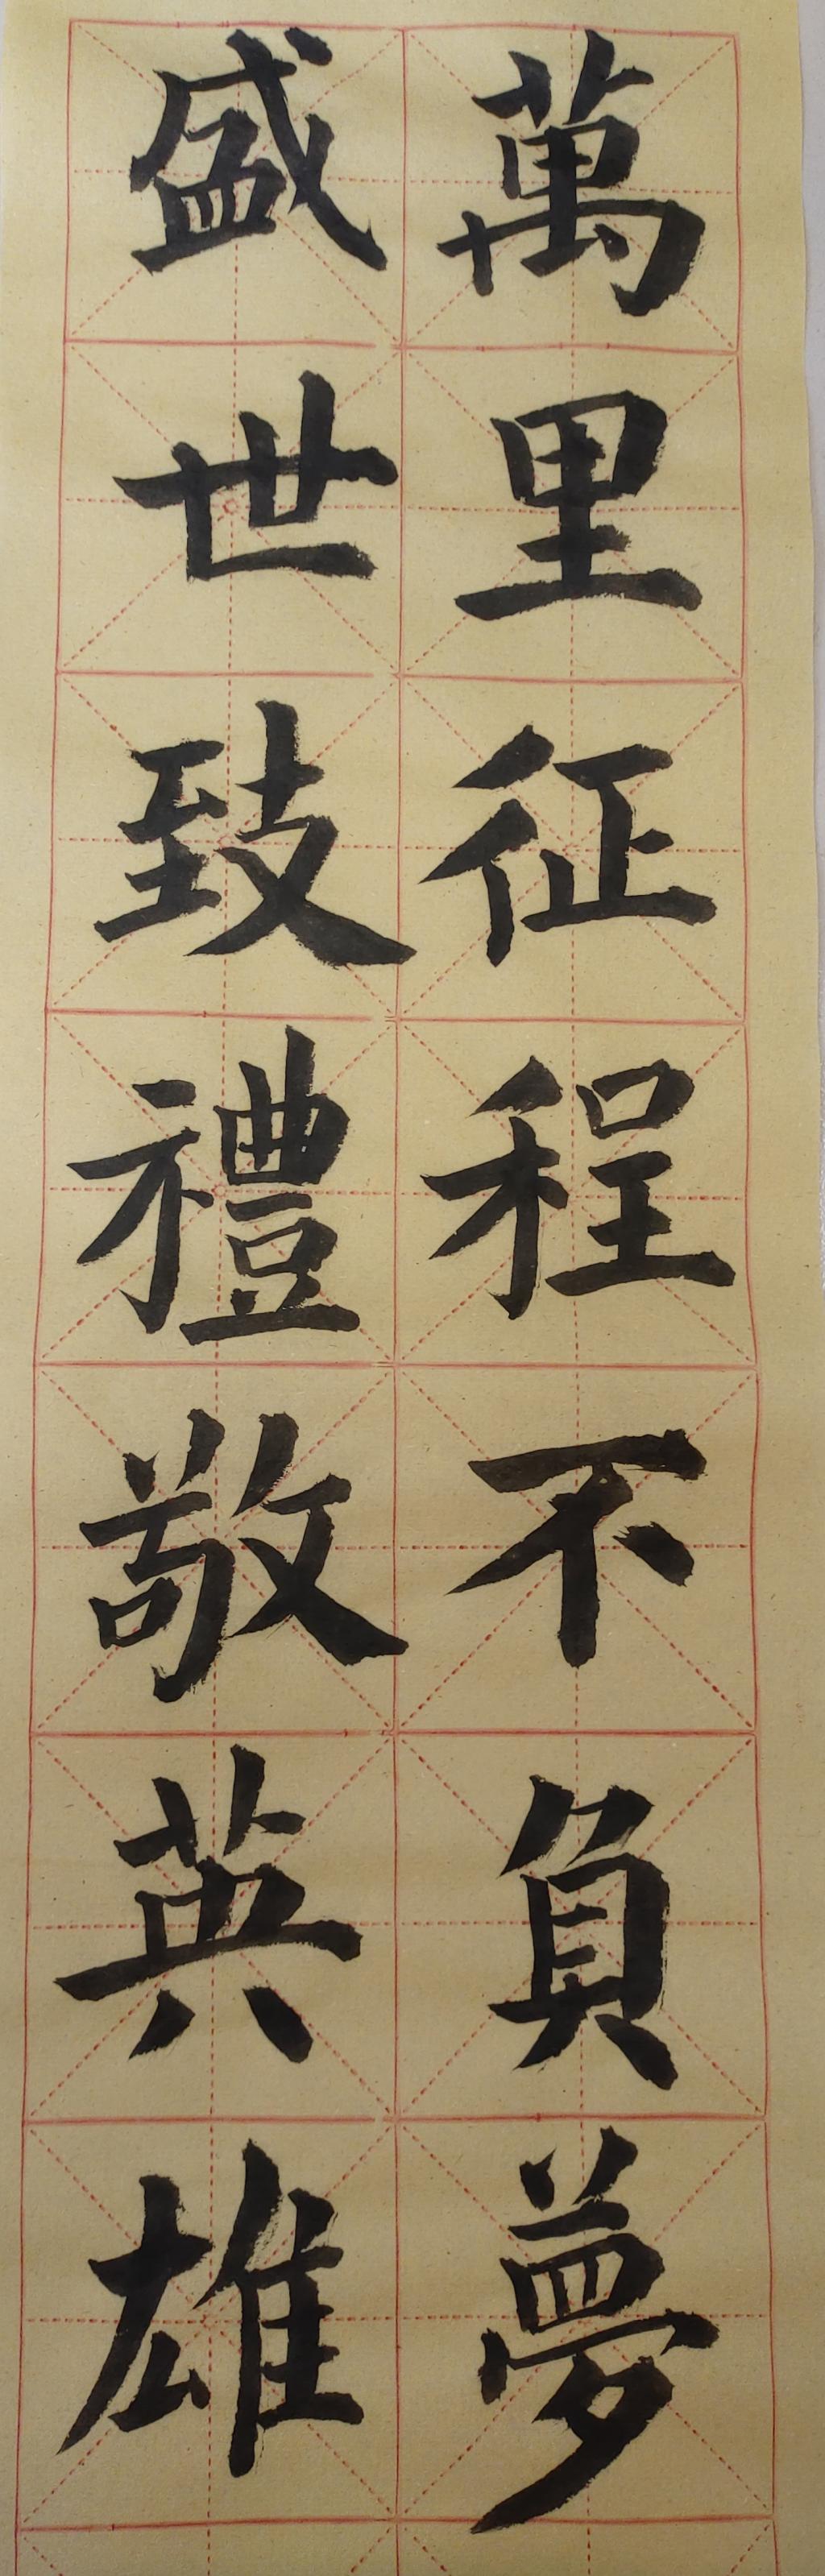 萬里征程不負夢
盛世致禮敬英雄